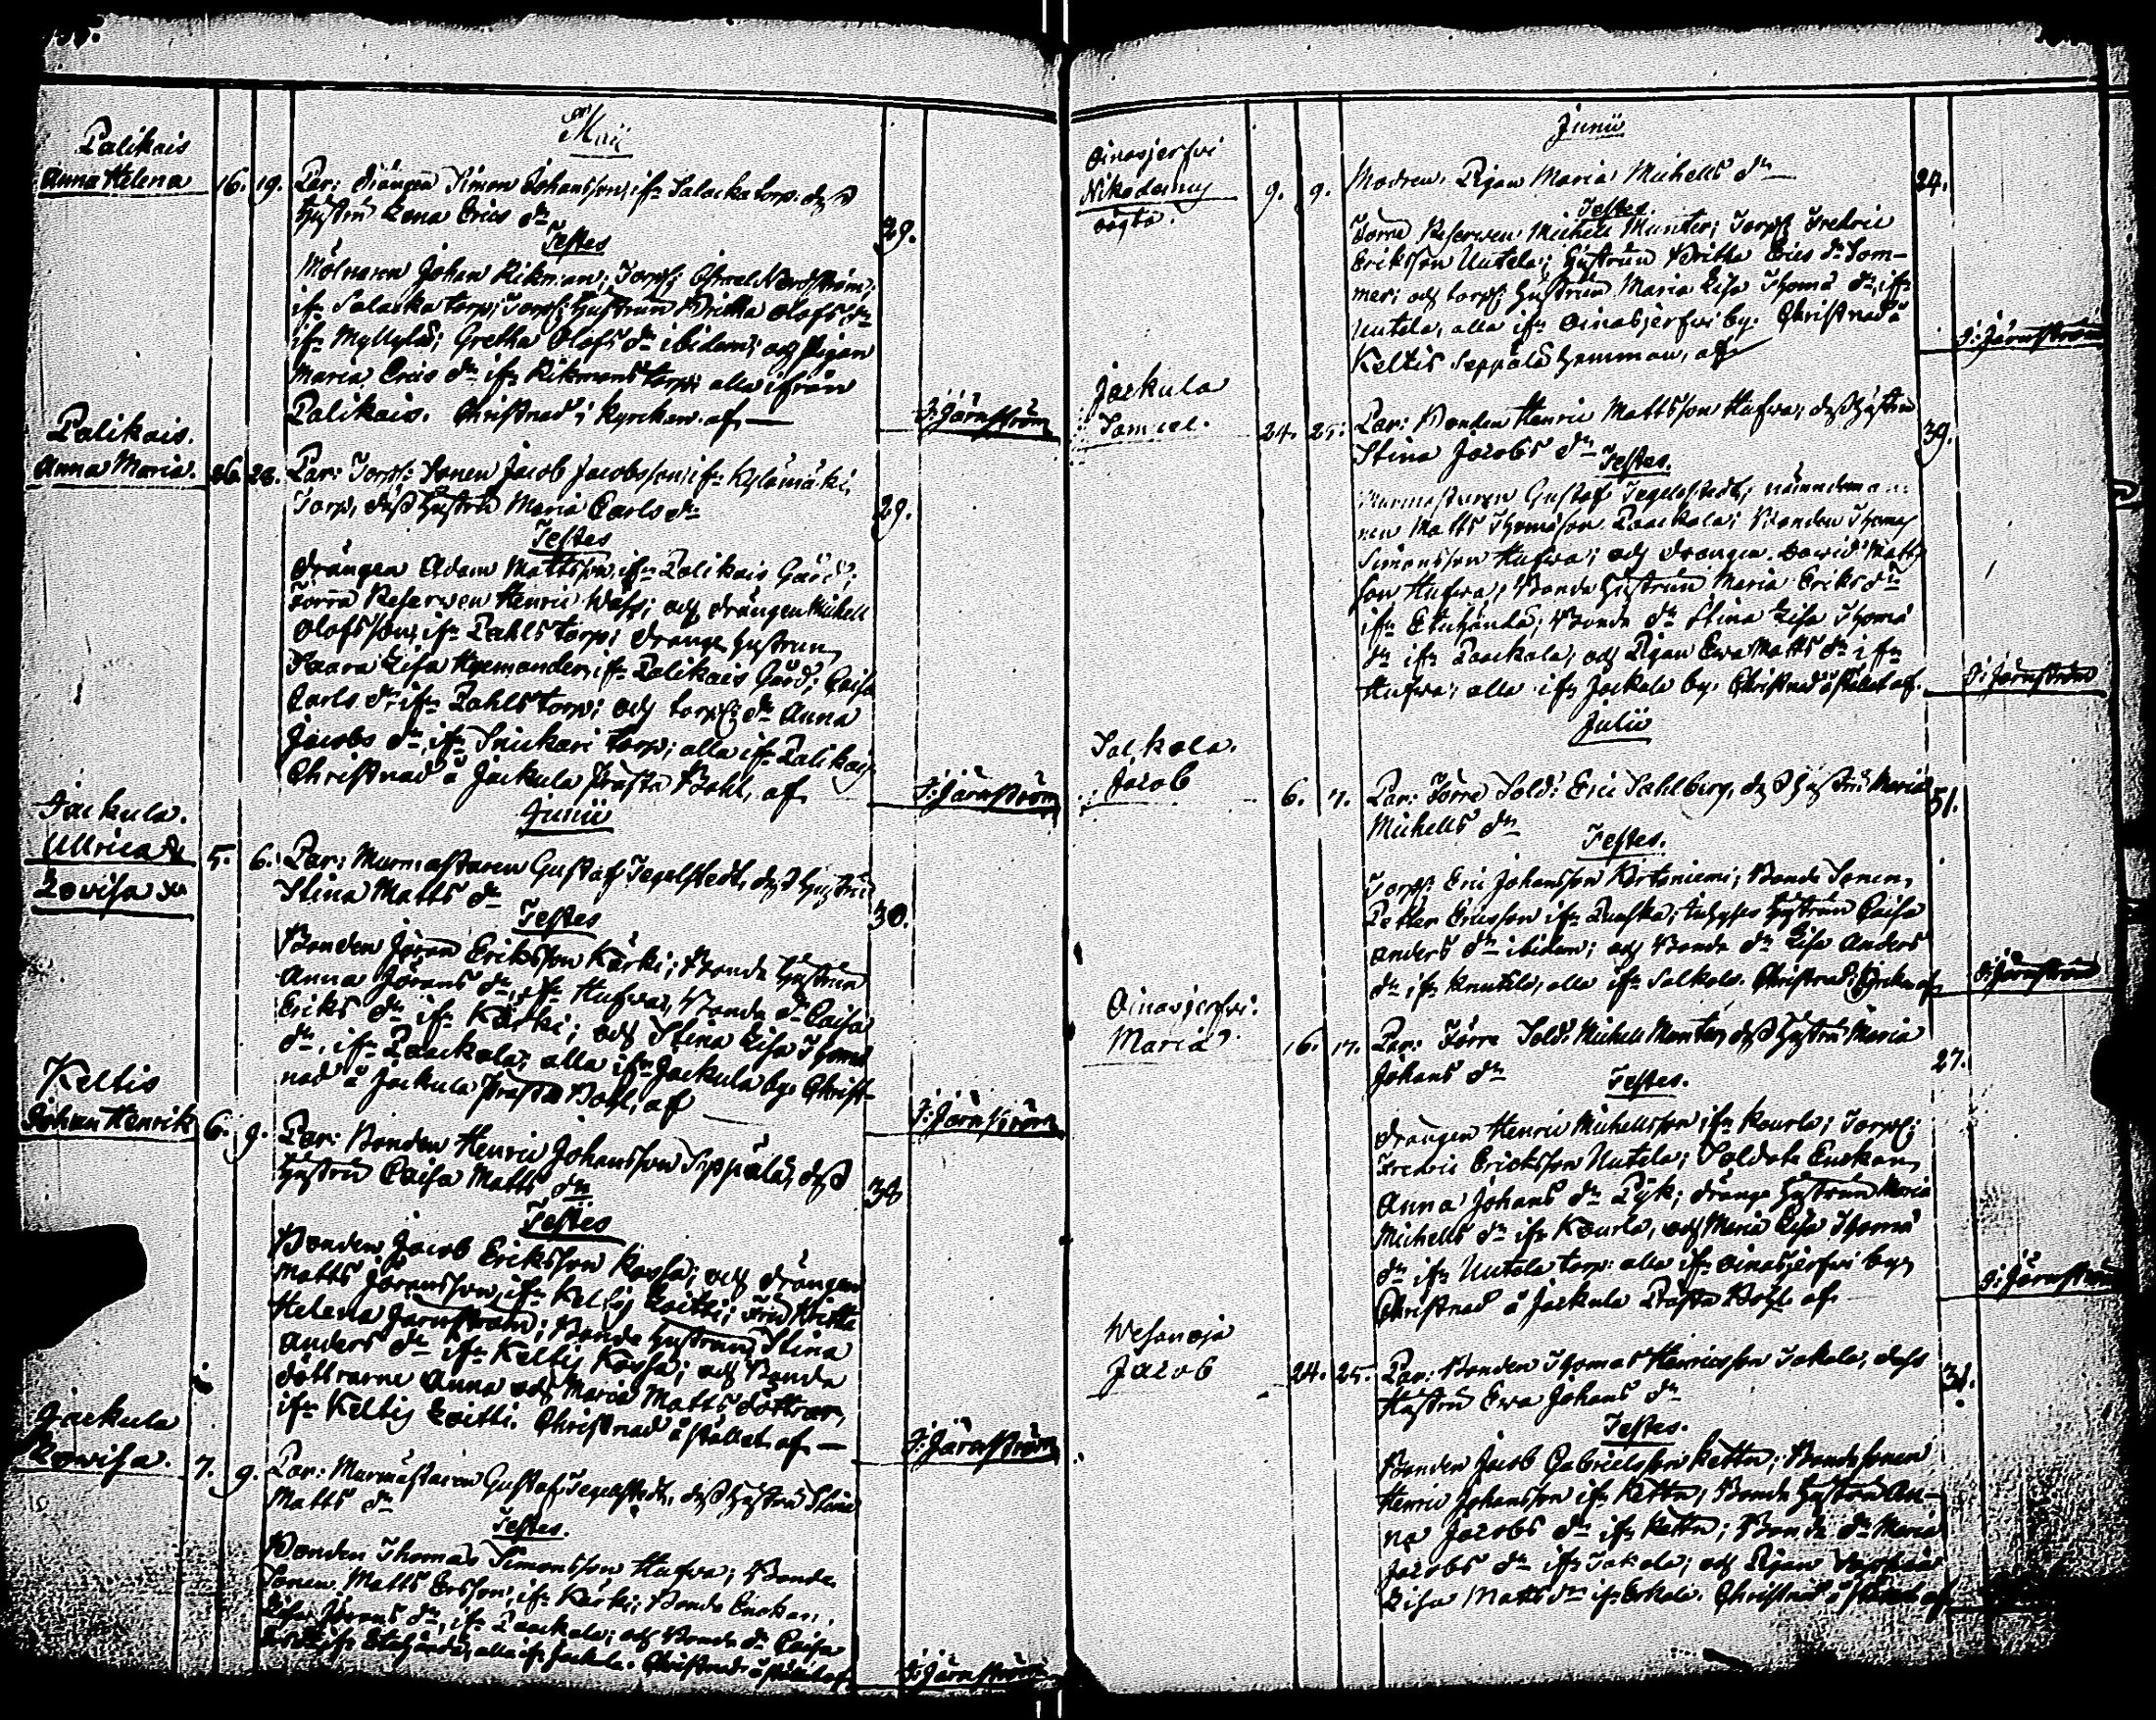 Maii
Palikais
Anna Helena 16. 19. Par: Drängen Simon Johansson, ifr. Salacka torp. deß
hustru Lena Erics dr 29.
Testes
Mölnaren Johan Rikman; Torp: Israel Nordström;
ifr Salacka torp; Torp: hustrun Britha Olofs dr
ifr Myllylä; Gretha Olofs dr ibidem; och pigan
Maria Erics dr ifr Rikmans torp; alla ifrån
Palikais. Christnad i kyrkan af — J: Järnström
Palikais.
Anna Maria. 26. 28. Par: Torp: Sonen Jacob Jacobsson, ifr Kylämäki
Torp, deß hustru Maria Carls dr 29.
Testes
Drängen Adam Mattsson, ifr Palikais Gård;
Förra Reserven Henric Wass; och drängen Michell
Olofsson, ifr Pahls torp; Dränge hustrun
Saara Lisa Hyemander, ifr Palikais Gård; Caisa
Carls dr ifr Pahls torp; och torp: dr Anna
Jacobs dr, ifr Snickari torp; alla ifr Palikais
Christnad å Jackula Prästa Bohl, af J: Järnström
Junii
Jackula.
Ullrica &
Lovisa 5. 6. Par: Murmästaren Gustaf Tegelstedt, deß hustru
Stina Matts dr 30.
Testes
Bonden Jöran Eriksson Kärki; Bonde hustrun
Anna Jörans dr, ifr Hufwa, Bonde dr Caisa
Eriks dr ifr Kärki; och Stina Lisa Thomæ
dr, ifr Paackala; alla ifr Jackula by. Christ-
nad å Jackula Prästa Bohl, af J: Järnström
Keltis
Johan Henrik 6. 9. Par: Bonden Henric Johansson Seppälä, deß
hustru Caisa Matts dr 38
Testes
Bonden Jacob Eriksson Kossa; och drängen
Matts Jöransson, ifr Keltis Loitti; Fru Britha
Helena Järnström; Bonde hustrun Stina
Anders dr ifr Keltis Kossa; och Bonde
döttrarne Anna och Maria Matts döttrar,
ifr Keltis Loitti. Christnad å stället af — J: Järnström
Jackula
Lowisa. 7. 9. Par: Murmästaren Gustaf Tegelstedt, deß hustru Stina
Matts dr
Testes.
Bonden Thomas Simonsson Hufwa; Bonde
Sonen Matts Ersson, ifr Kärki; Bonde Enckan
Lisa Jörans dr, ifr Paackala; och Bonde dr Caisa
ifr Etuhändä, alla ifr Jackula. Christnad å stället af J: Järnström
Junii
Oinasjerfwi
Nikodemus
oägta. 9. 9. Modren. Pigan Maria Michells dr — 24.
Testes.
Förra Reserven Michell Munter; Torp: Fredric
Eriksson Uutela; Hustrun Britha Erics dr Som-
mer; och torp: hustrun Maria Lisa Thomæ dr, ifr
Uutela, alla ifr Oinasjerfwi by. Christnad å
Keltis Seppälä hemman, af J: Järnström
Jackula
Samuel. 24. 25. Par: Bonden Henric Mattsson Hufwa, deß hustru
Stina Jacobs dr 39.
Testes.
Murmästaren Gustaf Tegelstedt; nämndeman
nen Matts Thomasson Paackala; Bonden Thomas
Simonsson Hufwa; och drängen David Matts
son Hufwa; Bonde hustrun Maria Eriks dr
ifr Etuhändä; Bonde dr Stina Lisa Thomæ
dr ifr Paackala, och Pigan Ewa Matts dr ifr
Hufwa; alla ifr Jackula by. Christnad å stället af. J: Järnström
Julii
Salkola.
Jacob 6. 7. Par: Förra Sold: Eric Sahlberg, deß hustru Maria
Michells dr 51.
Testes.
Torp: Eric Johansson Kortoniemi; Bonde Sonen,
Petter Ericsson ifr Puosta; hustrun Caisa
Anders dr ibidem; och Bonde dr Lisa Anders
dr ifr Knutila, alla ifr Salkola. Christnad i kyrkan af J: Järnström
Oinasjerfwi.
Maria. 16. 17. Par: Förra Sold: Michell Munter, deß hustru Maria
Johans dr 27.
Testes.
Drängen Henric Michellsson ifr Kourla; Torp:
Fredric Ericksson Uutela; Soldate Enckan,
Anna Johans dr Pijk; Dränge hustrun Maria
Michells dr ifr Kourla, och Maria Lisa Thomæ
dr ifr Uutela torp: alla ifr Oinasjerfwi by,
Christnad å Jackula Prästa Bohl af. J: Järnström
Wesanoja
Jacob 24. 25. Par: Bonden Thomas Henricsson Jakola, dess
Hustru Ewa Johans dr 31.
Testes.
Bonden Jacob Gabrielsson Kettu; Bondesonen
Henric Johansson ifr Kettu; Bonde hustrun An-
na Jacobs dr ifr Kettu; Bonde dr Maria
Jacobs dr ifr Jakola; och Pigan
Lisa Matts dr ifr Erkola. Christnad å stället af